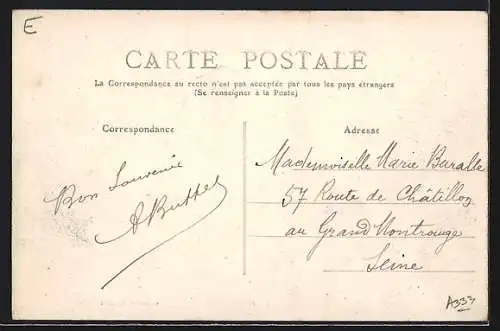 E
CARTE POSTALE
La Correspondance au recto n'est pas acceptée par tous les pays étrangers
(Se renseigner à la Poste)
Correspondance
Bon Souvenir
Adresse
Mademoiselle Marie Baralle
57 Route de Châtillon
au Grand Montrouge
Seine
A333